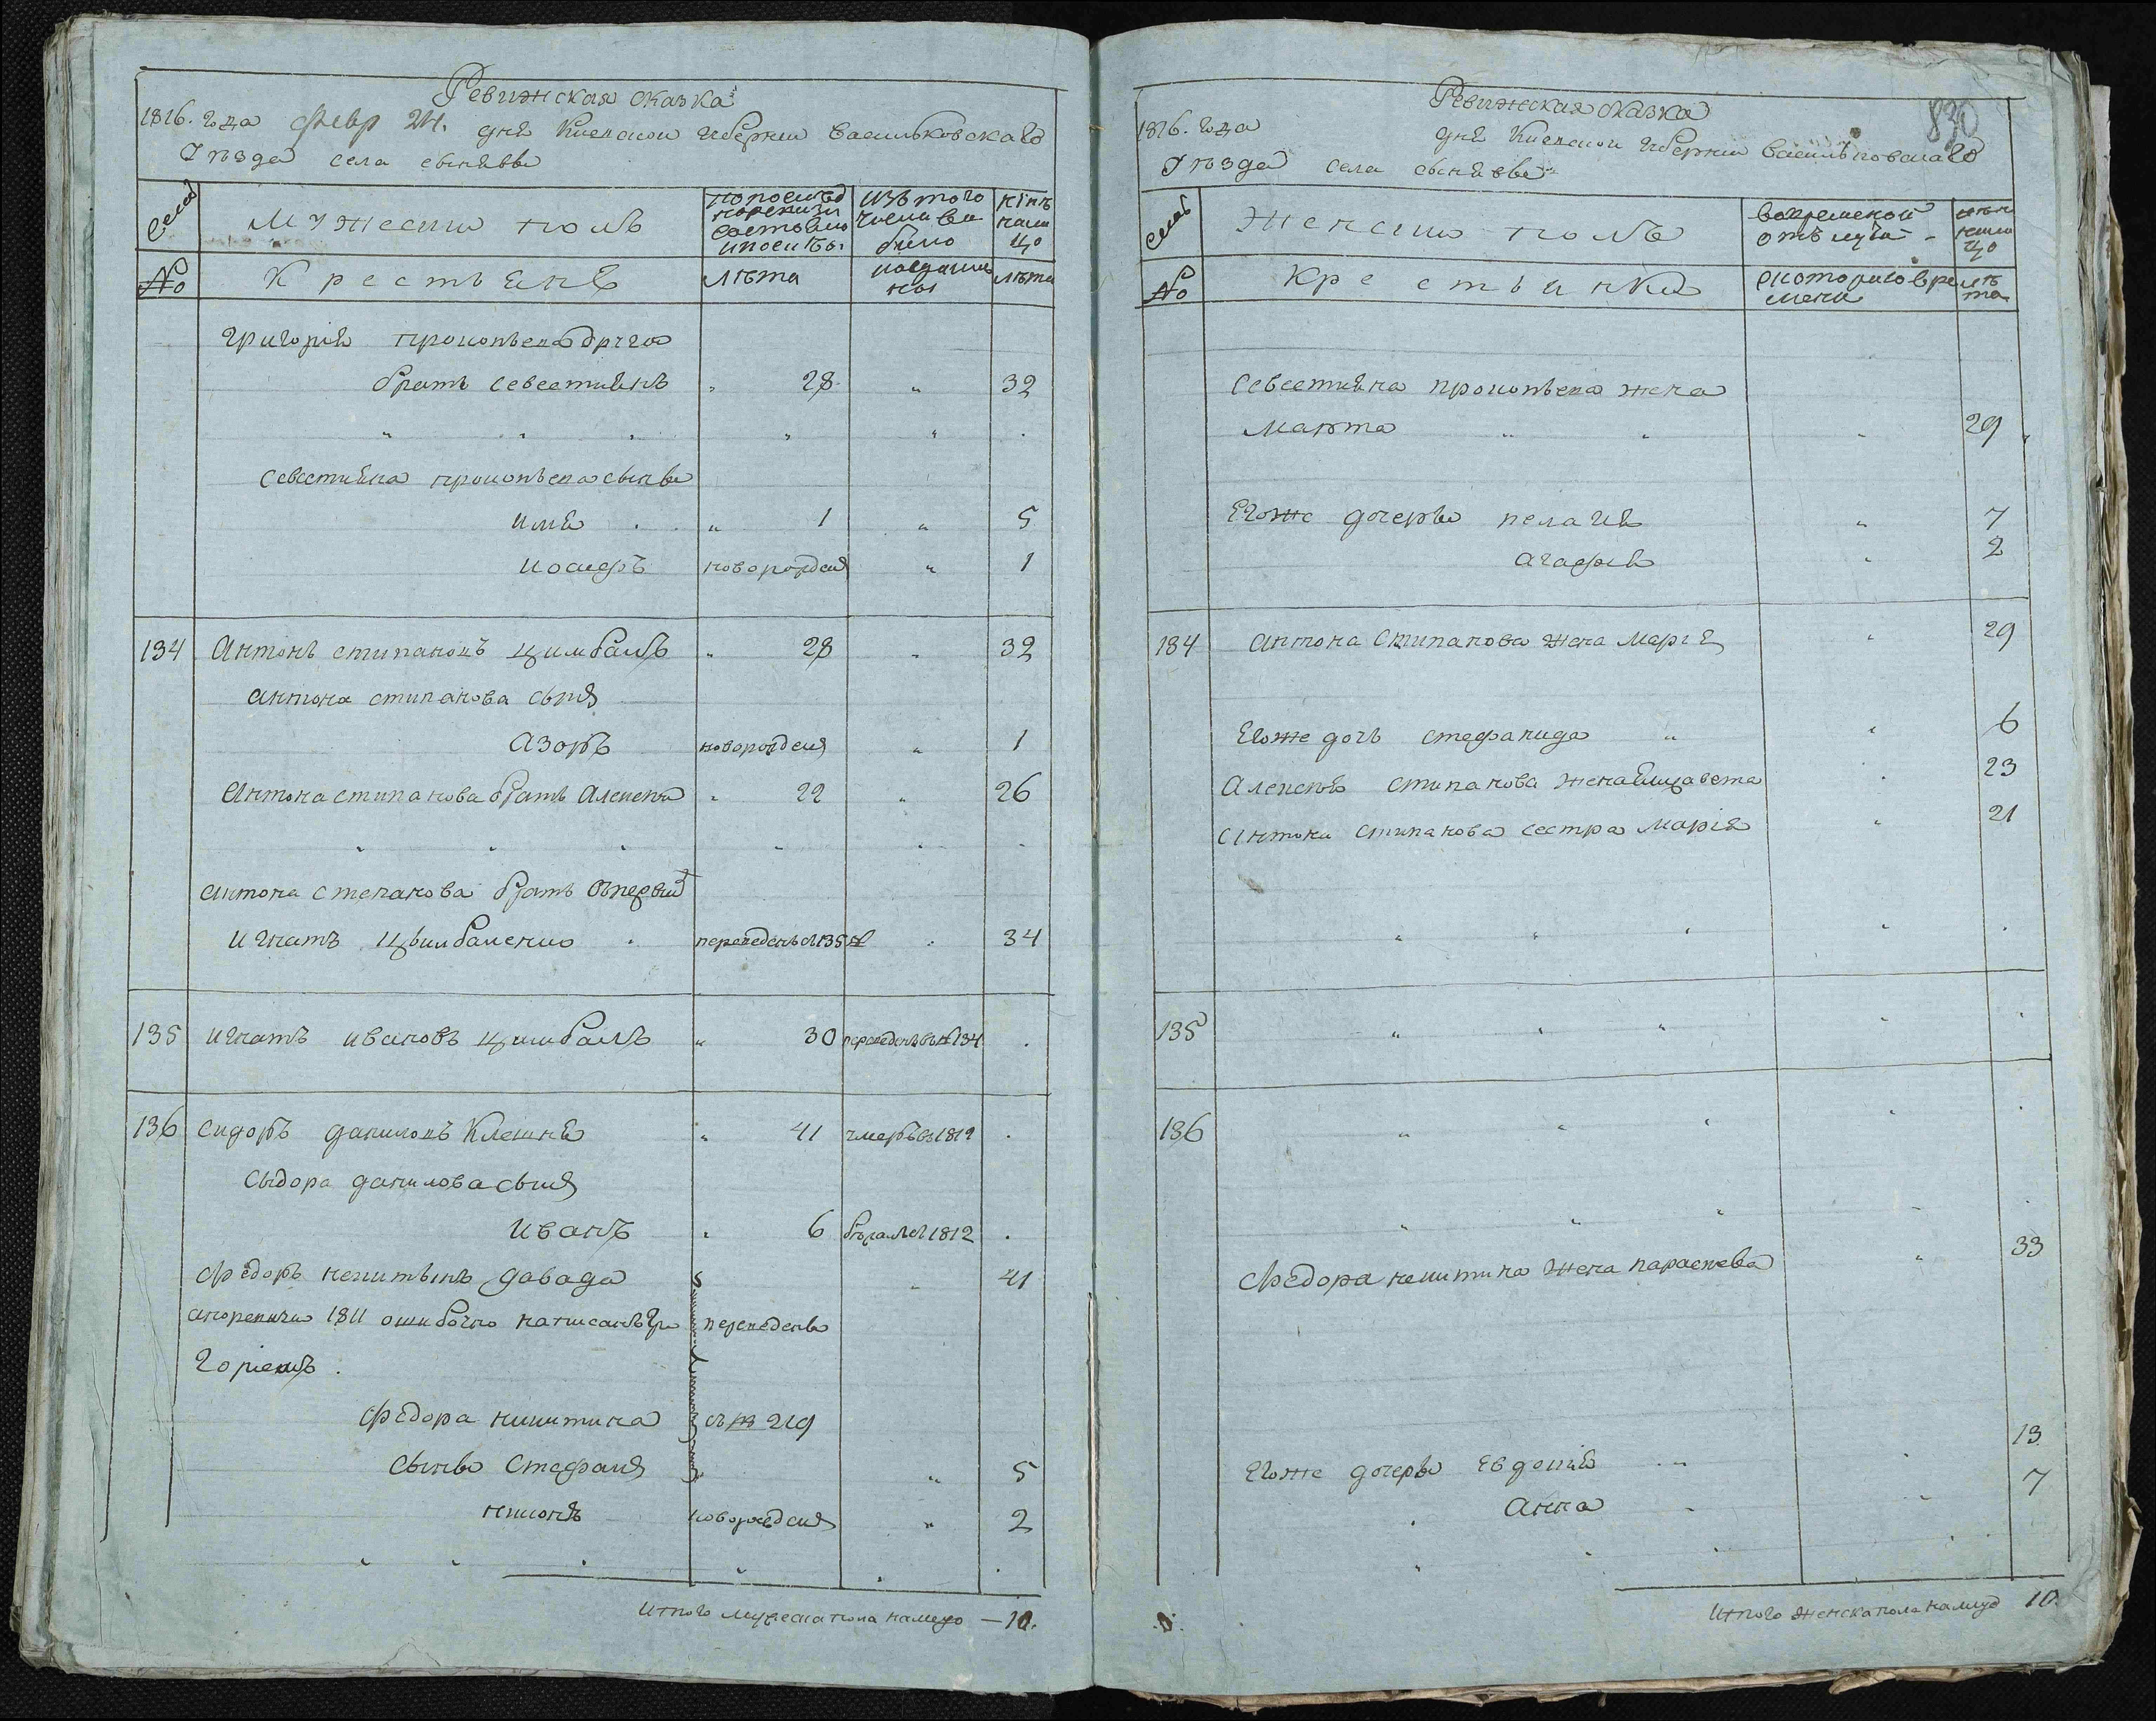 Ревижская сказка
1816. года Февр 24. дня Киевской губернии васильковскаго
уѣзда села сыняввы
семьи
мужеский полъ
по послед ней ревизии состояло и после бы
изъ того числа вы было
нинѣ на ли цо
№
Крестьяне
лѣта
когда имен ны
лѣта
григорія прокопьева другой
братъ севестиянъ " 28 " 32
севестияна прокопьева сынъве
илия " 1 " 5
иосифъ новорожден " 1
134 Антонъ стипановъ цимбалъ " 28 " 32
антона стипанова сынъ
азоръ новорожден " 1
Антона стипанова братъ алексей " 22 " 26
антона степанова братъ
игнатъ цымбаленко переведенъ съ 135 № " 34
135 игнатъ ивановъ цимбалъ " 30 переведенъ въ № 134
136 сидоръ даниловъ клешня " 41 умеръ въ 1812
сыдора данилова сынъ
иванъ " 6 въ 1812
федоръ никитинъ давада " 41
1811 ошибочно написанъ гри переведенъ
горіемъ
федора никитина съ № 219
сынъве стефанъ " 5
никонъ новорожден " 2
итого мужеска пола налицо — 10.
830
Ревижская сказка
1816. года дня Киевской губернии васильковскаго
уѣзда села сыняввы
семьи
женский полъ
во времѣнной отълучкѣ
нынѣ нали цо
№
Крестьянки
с котораго вре мени
лѣ та
севестияна прокопьева жена
марта " 29
Егоже дочеръи пелагия " 7
агафия " 2
134 антона стипанова жена марія " 29
Егоже дочь стефанида " 6
алексея стипанова жена елизавета " 23
антона стипанова сестра марія " 21
135
136
федора никитина жена параскева " 33
Егоже дочеры евдокия " 13
анна " 7
итого женска пола налицо 10.